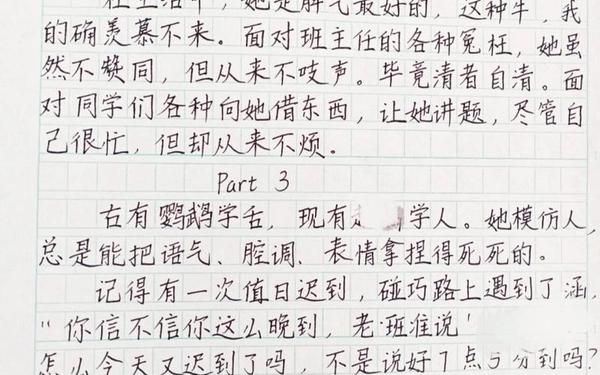 在生活中，她是脾气最好的，这种牛，我
的确羡慕不来。面对班主任的各种冤枉，她虽
然不赞同，但从来不吱声。毕竟清者自清。面
对同学们各种向她借东西，让她讲题，尽管自
己很忙，但却从来不烦。
Part 3
古有鹦鹉学舌，现有 学人。她模仿人，
总是能把语气、腔调、表情拿捏得死死的。
记得有一次值日迟到，碰巧路上遇到丁涵，
"你信不信你这么晚到，老班准说'
怎么今天又迟到了吗，不是说好7点5分到吗？